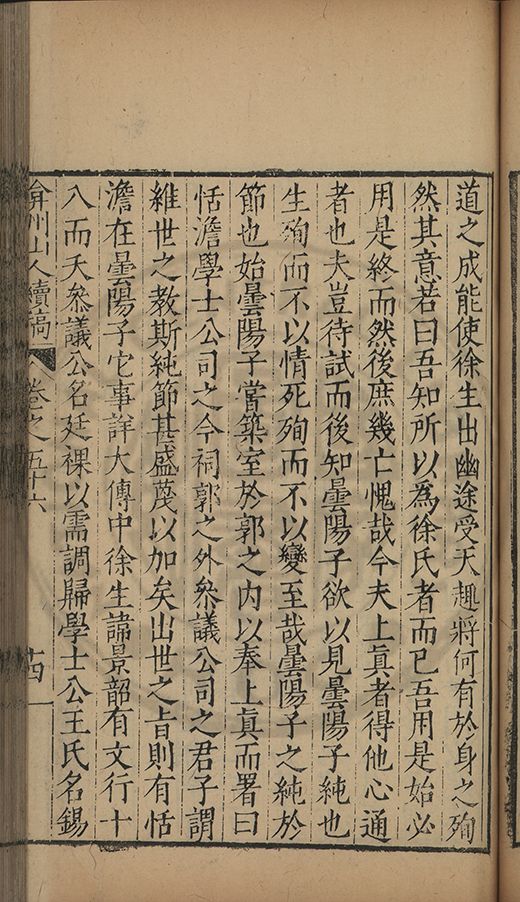 道之成能使徐生出幽途受天趣將何有於身之殉
然其意若曰吾知所以爲徐氏者而已吾用是始必
用是終而然後庶幾亡愧哉今夫上眞者得他心通
者也夫豈待試而後知曇陽子欲以見曇陽子純也
生殉而不以情死殉而不以變至哉曇陽子之純於
節也始曇陽子嘗築室於郭之内以奉上眞而署曰
恬澹學士公司之今祠郭之外叅議公司之君子謂
維世之敎斯純節甚盛蔑以加矣出世之旨則有恬
澹在曇陽子它事詳大傳中徐生諱景韶有文行十
八而夭叅議公名廷祼以需調歸學士公王氏名錫
弇州山人續稿
卷之五十六
十四